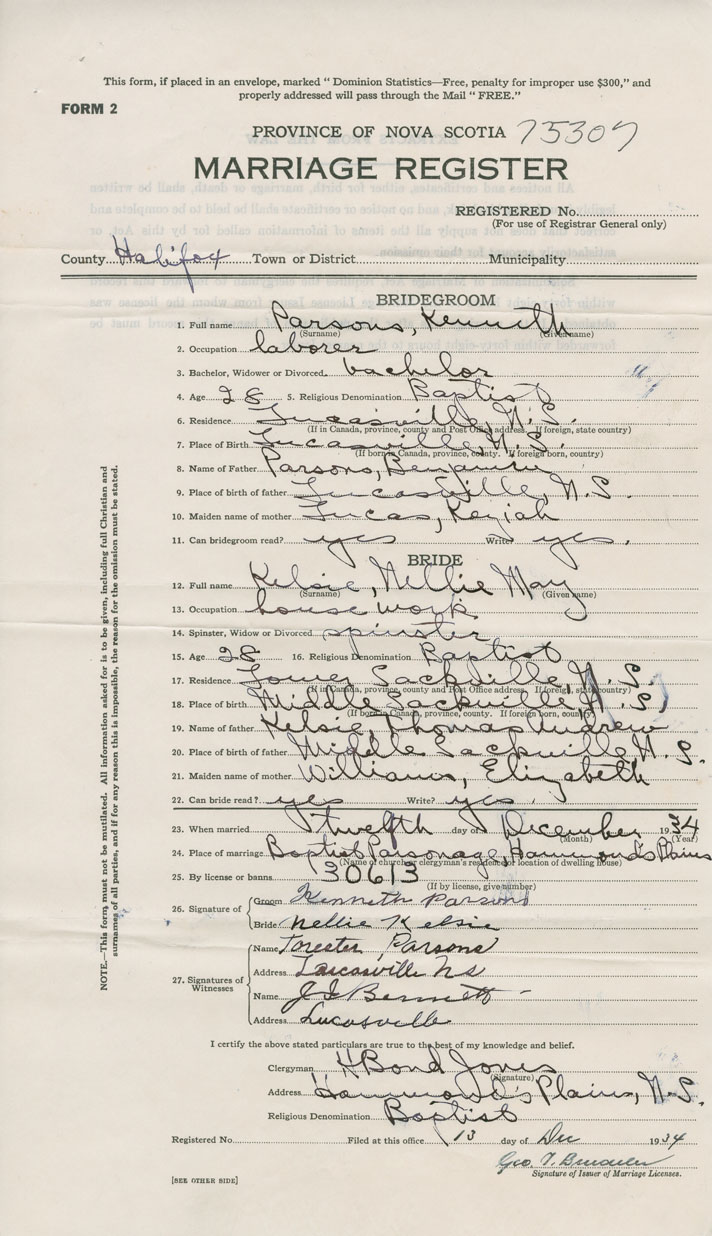 This form, if placed in an envelope, marked " Dominion Statistics—Free, penalty for improper use $300," and
properly addressed will pass through the Mail " FREE."
FORM 2
PROVINCE OF NOVA SCOTIA 75307
MARRIAGE REGISTER
REGISTERED No.
(For use of Registrar General only)
County Halifax Town or District Municipality
BRIDEGROOM
1. Full name Parsons, Kenneth
(Surname) (Given name)
2. Occupation laborer
3. Bachelor, Widower or Divorced bachelor
4. Age 28 5. Religious Denomination Baptist
6. Residence Lucasville, N.S.
(If in Canada, province, county and Post Office address. If foreign, state country)
7. Place of Birth Lucasville, N.S.
(If born in Canada, province, county. If foreign born, country)
8. Name of Father Parsons, Benjamin
9. Place of birth of father Lucasville, N.S.
10. Maiden name of mother Lucas, Keziah
11. Can bridegroom read? yes Write? yes.
BRIDE
12. Full name Kelsie, Nellie May
(Surname) (Given name)
13. Occupation house work
14. Spinster, Widow or Divorced spinster
15. Age 28 16. Religious Denomination Baptist
17. Residence Lower Sackville, N.S.
(If in Canada, province, county and Post Office address. If foreign, state country)
18. Place of birth Middle Sackville, N.S.
(If born in Canada, province, county. If foreign born, country)
19. Name of father Kelsie, Thomas Andrew
20. Place of birth of father Middle Sackville N.S.
21. Maiden name of mother Williams, Elizabeth
22. Can bride read? yes Write? yes.
23. When married twelfth day of December 1934
(Month) (Year)
24. Place of marriage Baptist Parsonage, Hammond's Plains
(Name of church or clergyman's residence or location of dwelling house)
25. By license or banns 30613
(If by license, give number)
26. Signature of Groom Kenneth Parsons
Bride Nellie Kelsie
27. Signatures of Witnesses
Name Forester Parsons
Address Lucasville NS
Name Bennett
Address Lucasville
I certify the above stated particulars are true to the best of my knowledge and belief.
Clergyman H Bond Jones
(Signature)
Address Hammond's Plains, N.S.
Religious Denomination Baptist
Registered No. Filed at this office 13 day of Dec 1934
Geo. T.
Signature of Issuer of Marriage Licenses.
[SEE OTHER SIDE]
NOTE.—This form must not be mutilated. All information asked for is to be given, including full Christian and
surnames of all parties, and if for any reason this is impossible, the reason for the omission must be stated.